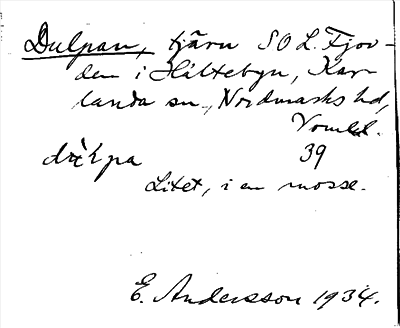 Dulpan, tjärn SO L. Fjor-
den i Håltebyn, Kar-
landa sn., Nordmarks hd,
Vomld.
39
Litet, i en mosse.
E. Andersson 1934.